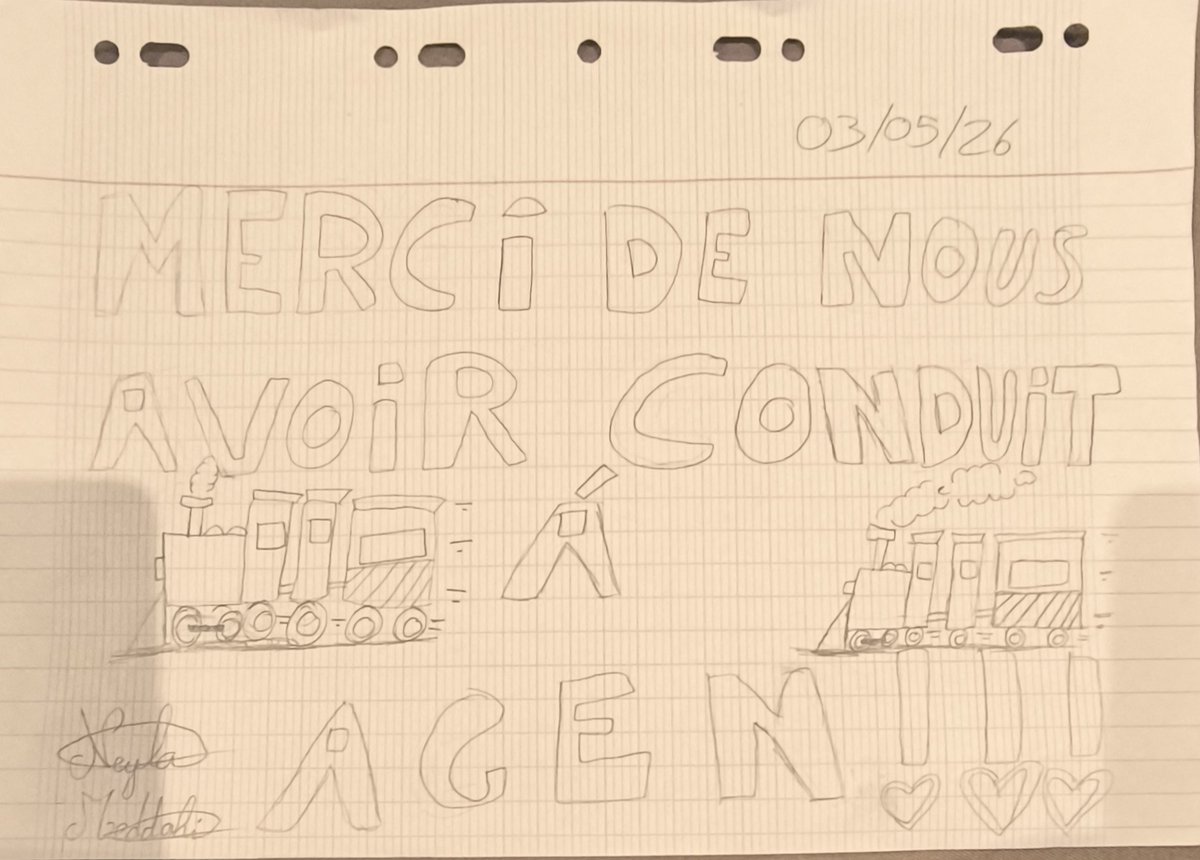 03/05/26
MERCi DE NOUS
AVOiR CONDUiT
À
AGEN !!!
Neyla